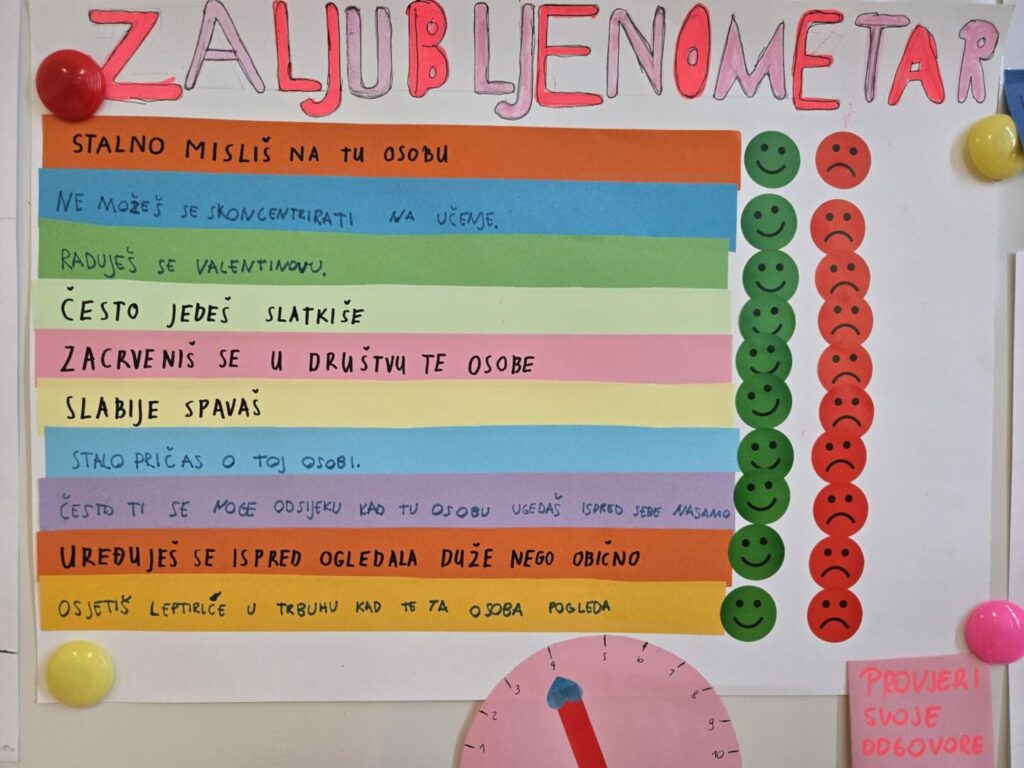 ZALJUBLJENOMETAR
STALNO MISLIŠ NA TU OSOBU
NE MOŽEŠ SE SKONCENTRIRATI NA UČENJE.
RADUJEŠ SE VALENTINOVU.
ČESTO JEDEŠ SLATKIŠE
ZACRVENIŠ SE U DRUŠTVU TE OSOBE
SLABIJE SPAVAŠ
STALO PRIČAS O TOJ OSOBI.
ČESTO TI SE NOGE ODSIJEKU KAD TU OSOBU UGEDAŠ ISPRED SEBE NASAMO
UREĐUJEŠ SE ISPRED OGLEDALA DUŽE NEGO OBIČNO
OSJETIŠ LEPTIRIĆE U TRBUHU KAD TE TA OSOBA POGLEDA
1
2
3
4
5
6
7
8
9
10
PROVJERI
SVOJE
ODGOVORE